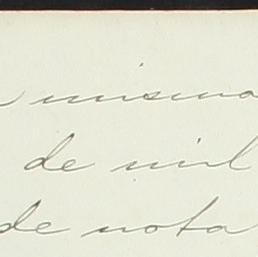 misma
de mil
de nota